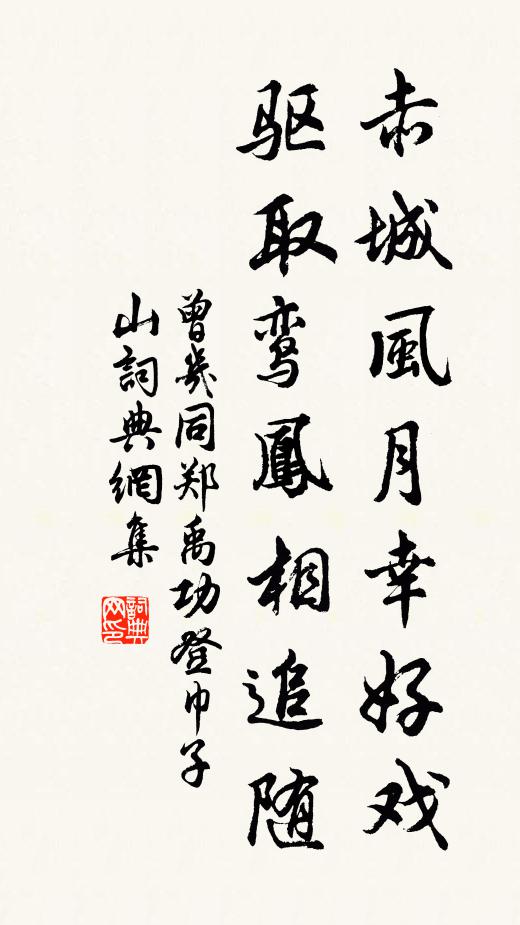 赤城風月幸好戏
驱取鸾鳳相追随
曾幾同郑禹功登巾子
山詞典網集
詞典网印